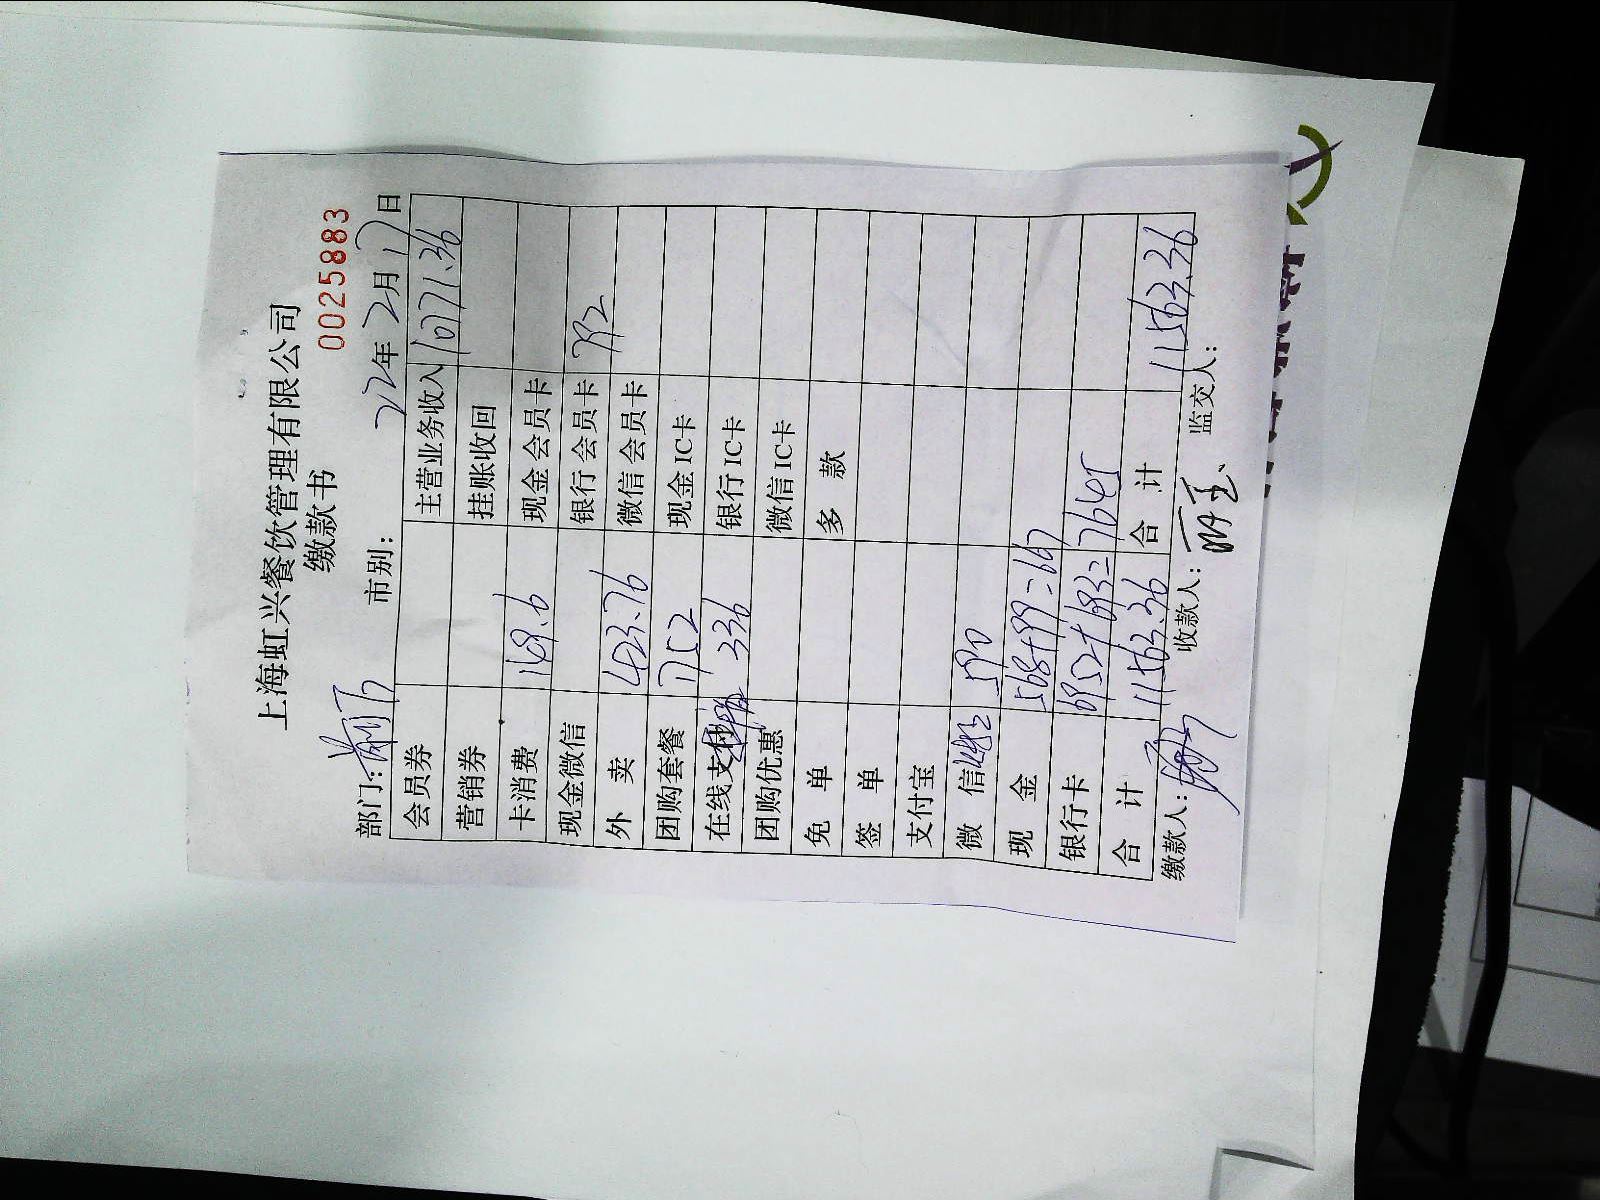 上海虹兴餐饮管理有限公司
缴款书 0025883
部门：前厅 市别： 22年2月17日
会员券 主营业务收入 10771.36
营销券 挂账收回
卡消费 149.6 现金会员卡
现金微信 银行会员卡 792
外卖 423.76 微信会员卡
团购套餐 1752 现金IC卡
在线支付 336 银行IC卡
团购优惠 微信IC卡
免单 多款
签单
支付宝
微信 590
现金 568+99=667
银行卡 6952+693=7645
合计 11563.36 合计 11563.36
缴款人： 收款人： 监交人：